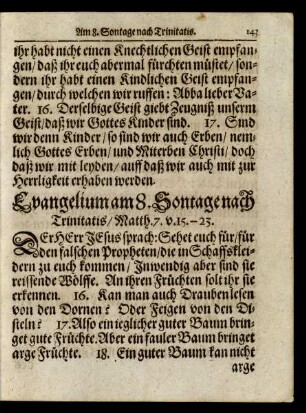 Am 8. Sontage nach Trinitatis. 143
ihr habt nicht einen Knechtlichen Geist empfan-
gen/ daß ihr euch abermal fürchten müstet/ son-
dern ihr habt einen Kindlichen Geist empfan-
gen/ durch welchen wir ruffen: Abba lieber Va-
ter. 16. Derselbige Geist giebt Zeugniß unserm
Geist/ daß wir Gottes Kinder sind. 17. Sind
wir denn Kinder/ so sind wir auch Erben/ nem-
lich Gottes Erben/ und Miterben Christi/ doch
daß wir mit leyden/ auff daß wir auch mit zur
Herrligkeit erhaben werden.
Evangelium am 8. Sontage nach
Trinitatis/ Matth. 7. v. 15.-23.
DEr HErr JEsus sprach: Sehet euch für/ für
den falschen Propheten/ die in Schaffsklei-
dern zu euch kommen/ Inwendig aber sind sie
reissende Wölffe. An ihren Früchten solt ihr sie
erkennen. 16. Kan man auch Drauben lesen
von den Dornen? Oder Feigen von den Di-
steln? 17. Also ein ieglicher guter Baum brin-
get gute Früchte. Aber ein fauler Baum bringet
arge Früchte. 18. Ein guter Baum kan nicht
arge